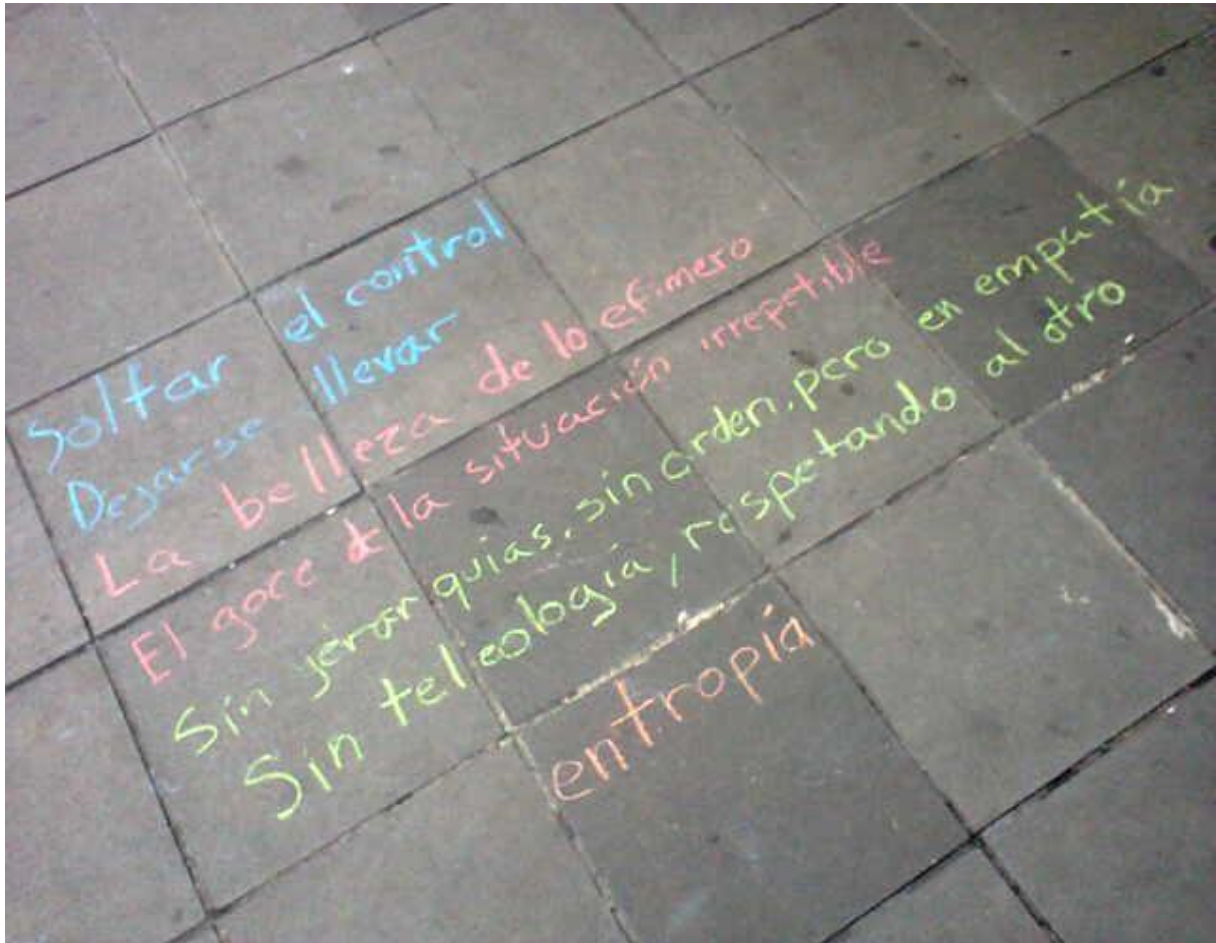 Soltar el control
Dejarse llevar
La belleza de lo efímero
El goce de la situación irrepetible
Sin jerarquias, sin orden, pero en empatía
Sin teleología, respetando al otro
entropía